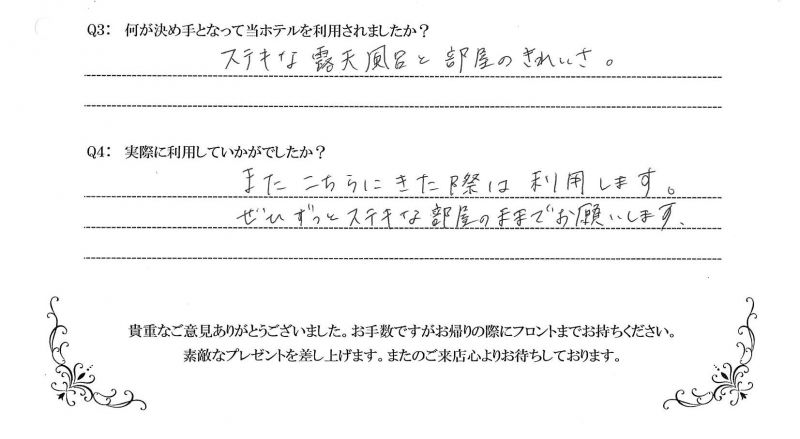 Q3: 何が決め手となって当ホテルを利用されましたか？
ステキな露天風呂と部屋のきれいさ。
Q4: 実際に利用していかがでしたか？
またこちらにきた際は利用します。
ぜひずっとステキな部屋のままでお願いします、
貴重なご意見ありがとうございました。お手数ですがお帰りの際にフロントまでお持ちください。
素敵なプレゼントを差し上げます。またのご来店心よりお待ちしております。